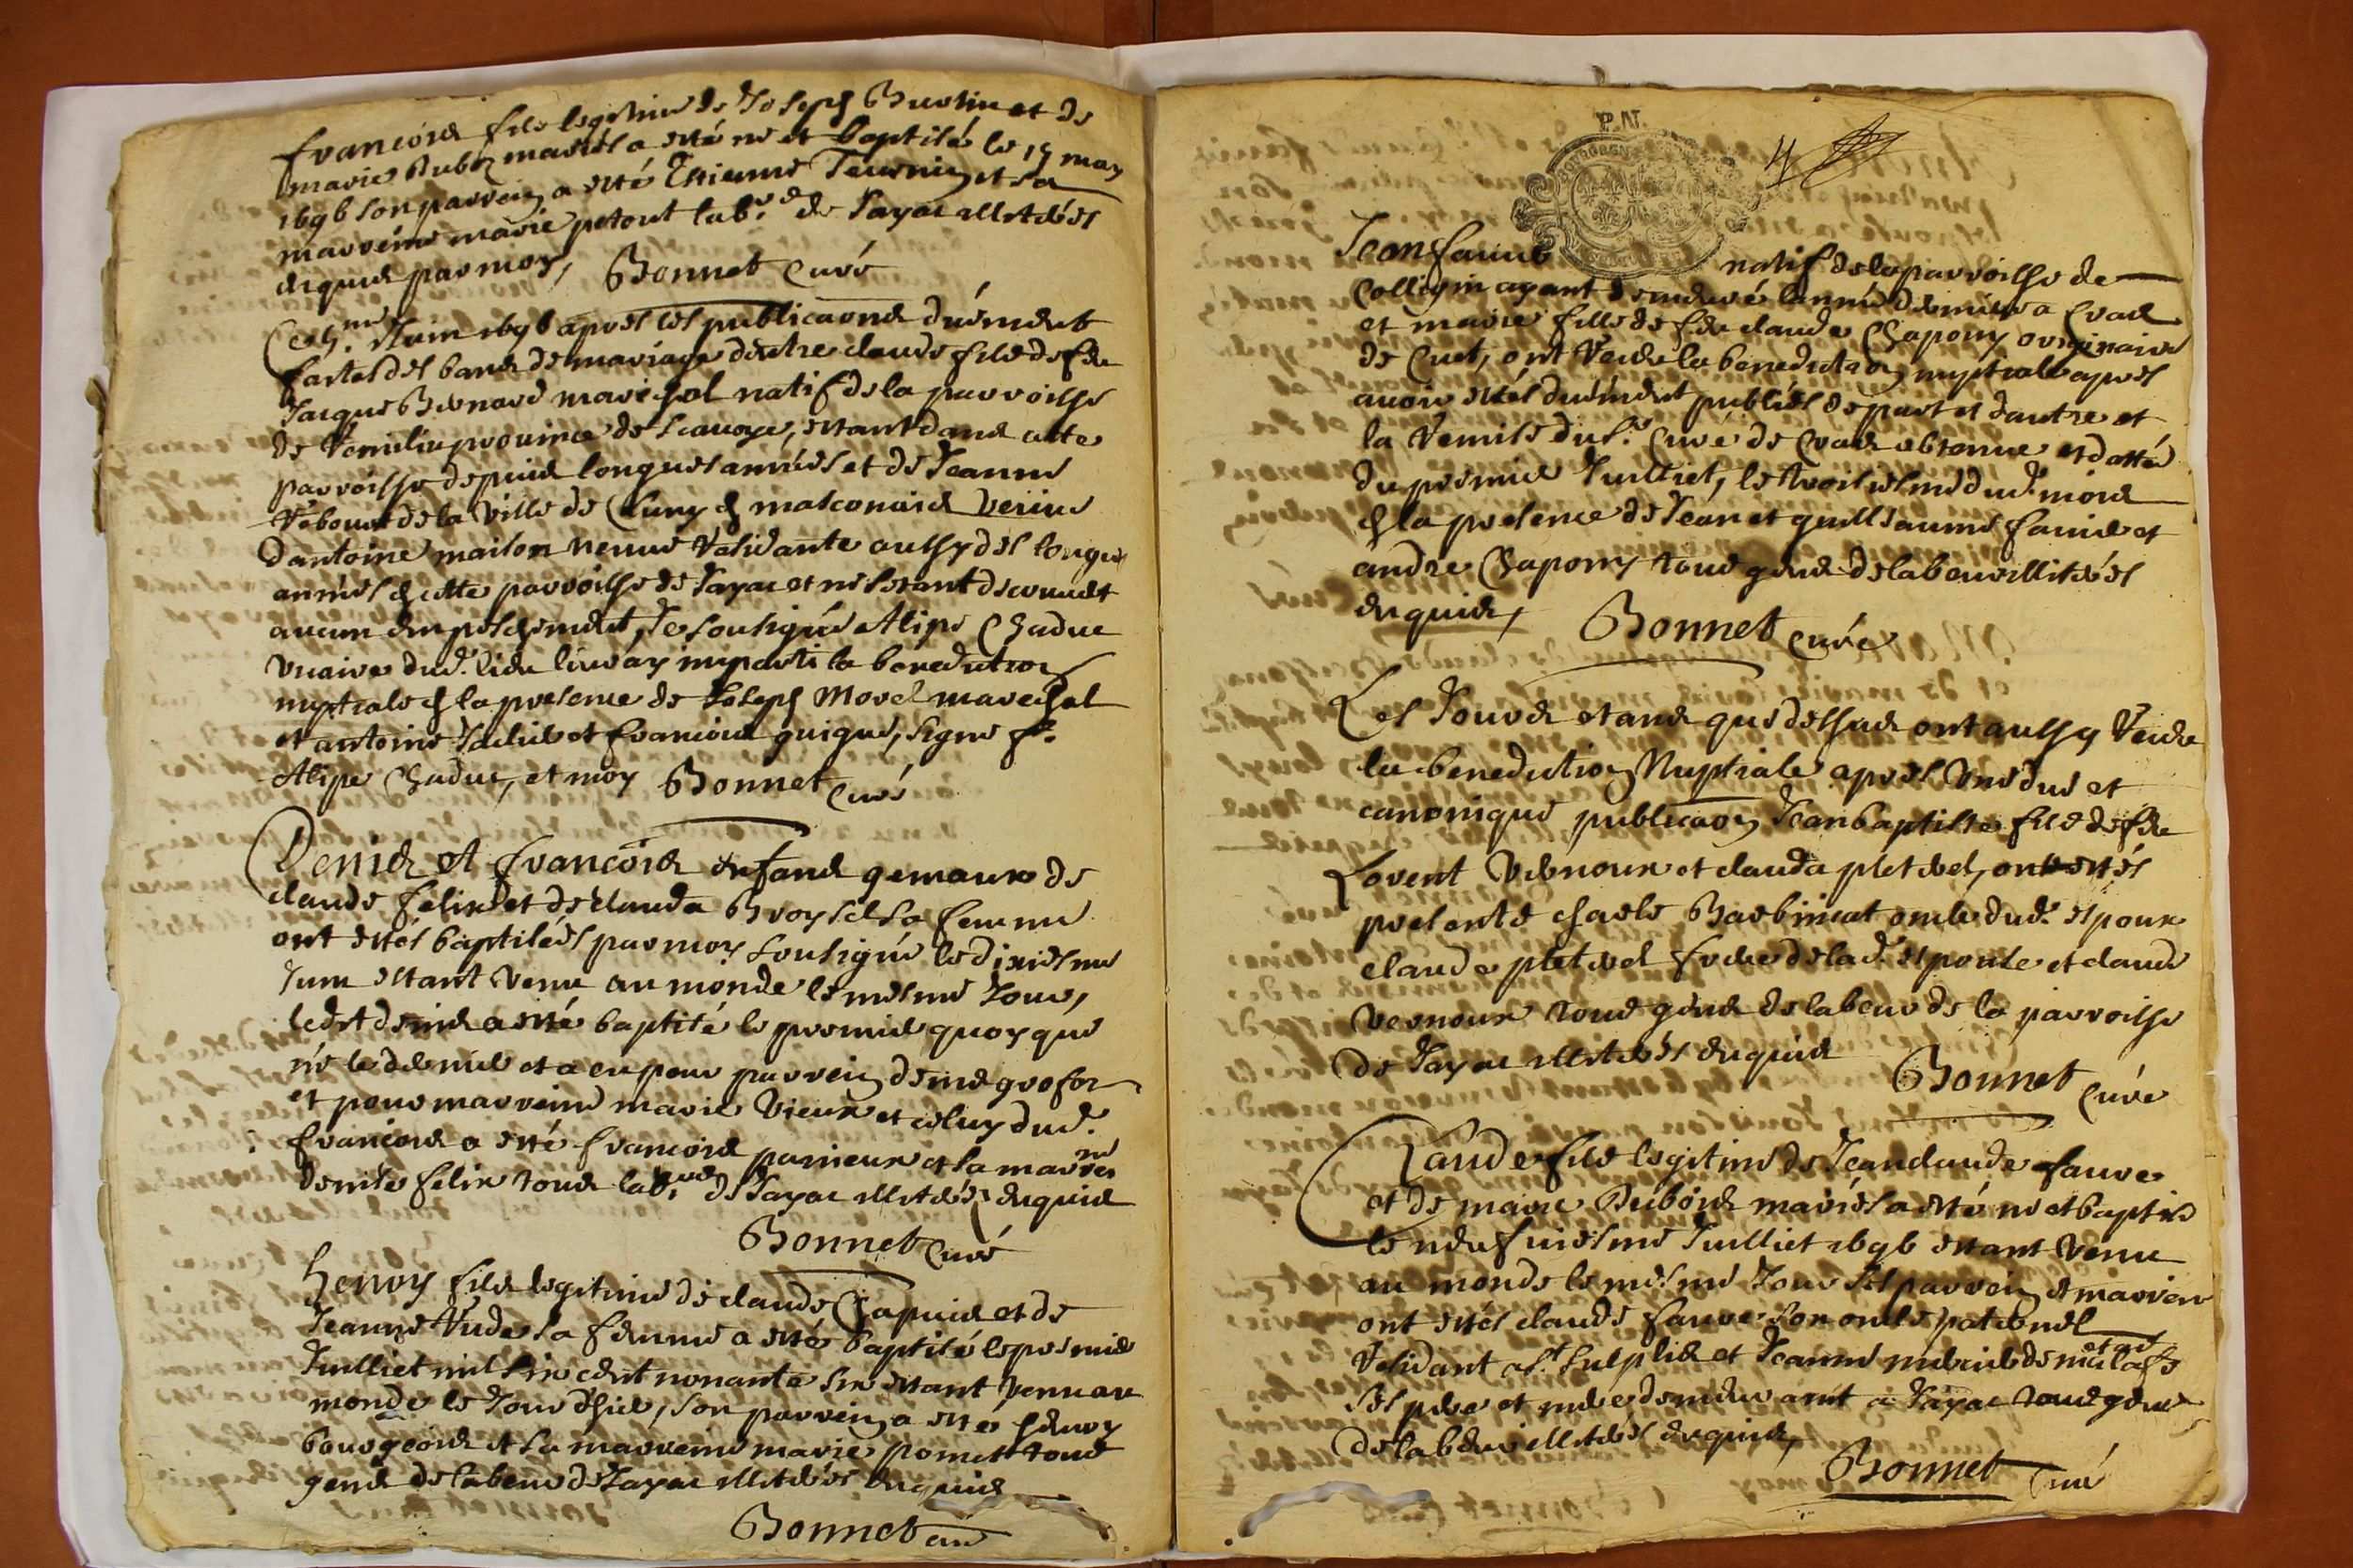 francois fils legitime de Joseph Burtin et de
marie Dubois mariés a esté né et baptisé le 15 may
1696 son parrein a esté Etienne Teurnier et sa
marreine marie petout lab.rs de Jayac illiterés
enquis par moy, Bonnet Curé
Ce 5.me Juin 1696 apres les publicaons duëment
faites des bans de mariage d'entre claude fils de feu
Jacque Bernard marichal natif de la parroisse
de province de Scavoye, estant dans cette
parroisse depuis longues années et de Jeanne
Rebour de la ville de Cluny en masconnois veuve
d'antoine maison venue residante aussy des longues
années en cette parroisse de Jayac et ne s'estant decouvert
aucun empeschement, Je soussigné Alipe Chaduc
vicaire dud. lieu leur ay imparti la benediction
nuptiale en la presence de Joseph Morel marechal
et antoine et francois guigue, signé f.
Alipe Chaduc, et moy Bonnet Curé
Denis et francois enfans gemaux de
claude felix et de clauda Broyset sa femme
ont estés baptisées par moy soussigné le dixiesme
Juin estant venu au monde le mesme Jour,
ledit denis a esté baptisé le premier quoy que
né le dernier et a eu pour parrein denis grosfor
et pour marreine marie Vieux et celuy dud.
francois a esté francois panieux et la marreine
denise felix tous lab.rs de Jayac illiterés enquis
Bonnet Curé
henry fils legitime de claude Chapuis et de
Jeanne Rude sa femme a esté baptisé le premier
Juilliet mil six cent nonante six estant venu au
monde le Jour d'hier, son parrein a esté henry
bourgeois et sa marreine marie pomet tous
gens de labeur de Jayac illiterés enquis
Bonnet curé
P.N.
4
Jean faure natif de la parroisse de
Colligni ayant demeuré l'année derniere a Cras
et marie fille de feu claude Chapony originaire
de Cuet, ont receu la benediction nuptiale apres
avoir estés duëment publiés de part et d'autre et
la remise du S.r Curé de Cras obtenue et dattée
du premier Juilliet, le troisiesme dud. mois
en la presence de Jean et guilleaume faure et
andre Chapony tous gens de labeur illiterés
enquis, Bonnet Curé
Les Jours et ans que dessus ont aussy receu
la benediction Nuptiale apres une due et
canonique publicaon Jean baptiste fils de feu
Lorent Vernoux et clauda pletret, ont estés
presents charle Barbinat oncle dud. espoux
claude pletret frere de lad. espouse et claude
vernoux tous gens de labeur de la parroisse
de Jayac illiterés enquis Bonnet Curé
Claude fils legitime de Jean claude faure
et de marie Dubois mariés a esté né et baptisé
le neufviesme Juilliet 1696 estant venu
au monde le mesme Jour ses parrein et marreine
ont estés claude faure son oncle paternel
residant a S.t sulpice et Jeanne
ses pere et mere demeurant a Jayac tous gens
de labeur illiterés enquis,
Bonnet Curé